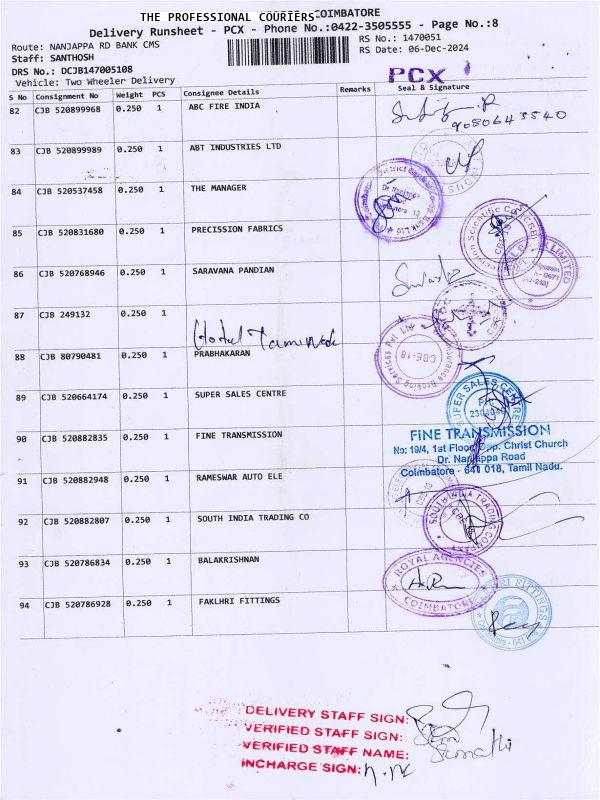 THE PROFESSIONAL COURIERS COIMBATORE
Delivery Runsheet - PCX - Phone No.:0422-3505555 - Page No.:8
Route: NANJAPPA RD BANK CMS
RS No.: 1470051
Staff: SANTHOSH
RS Date: 06-Dec-2024
DRS No.: DCJB147005108
Vehicle: Two Wheeler Delivery
PCX
S No Consignment No Weight PCS Consignee Details Remarks Seal & Signature
82 CJB 520899968 0.250 1 ABC FIRE INDIA
9080643540
83 CJB 520899989 0.250 1 ABT INDUSTRIES LTD
84 CJB 520537458 0.250 1 THE MANAGER
85 CJB 520831680 0.250 1 PRECISSION FABRICS
86 CJB 520768946 0.250 1 SARAVANA PANDIAN
87 CJB 249132 0.250 1
Hotel Tamilnadu
88 CJB 80790481 0.250 1 PRABHAKARAN
CBE-18
89 CJB 520664174 0.250 1 SUPER SALES CENTRE
SUPER SALES CENTRE
90 CJB 520882835 0.250 1 FINE TRANSMISSION
FINE TRANSMISSION
No: 19/4, 1st Floor, Opp. Christ Church
Dr. Nanjappa Road
Coimbatore - 641 018, Tamil Nadu.
91 CJB 520882948 0.250 1 RAMESWAR AUTO ELE
92 CJB 520882807 0.250 1 SOUTH INDIA TRADING CO
SOUTH INDIA TRADING COMPANY
93 CJB 520786834 0.250 1 BALAKRISHNAN
ROYAL AGENCIES
COIMBATORE
94 CJB 520786928 0.250 1 FAKLHRI FITTINGS
DELIVERY STAFF SIGN:
VERIFIED STAFF SIGN:
VERIFIED STAFF NAME: Sumathi
INCHARGE SIGN: